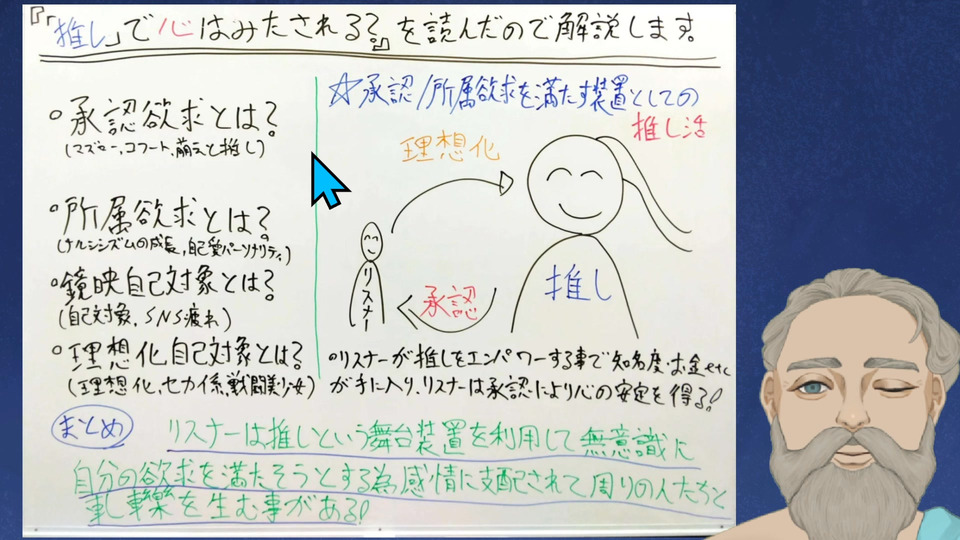 『「推し」で心はみたされる?』を読んだので解説します。
○承認欲求とは?
(マズロー,コフート,萌えと推し)
○所属欲求とは?
(ナルシシズムの成長,自己愛パーソナリティ)
○鏡映自己対象とは?
(自己対象,SNS疲れ)
○理想化自己対象とは?
(理想化,セカイ系,戦闘美少女)
☆承認/所属欲求を満たす装置としての
推し活
理想化
リスナー
承認
推し
○リスナーが推しをエンパワーする事で知名度・お金etc
が手に入り,リスナーは承認により心の安定を得る!
まとめ
リスナーは推しという舞台装置を利用して無意識に
自分の欲求を満たそうとする為感情に支配されて周りの人たちと
軋轢を生む事がある!